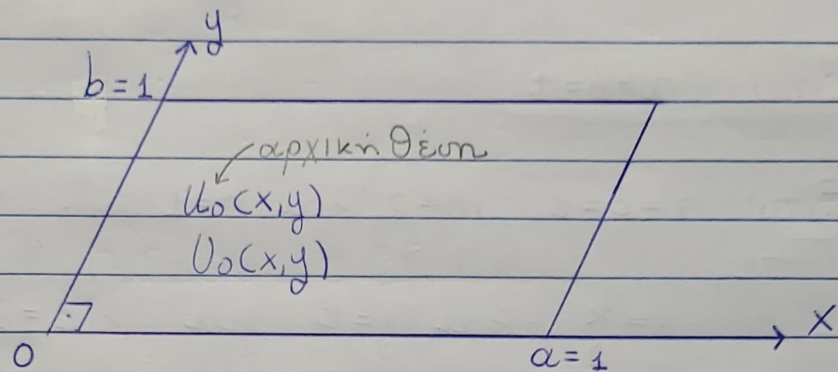 y
b = 1
αρχική θέση
u₀(x,y)
υ₀(x,y)
0
a = 1
x